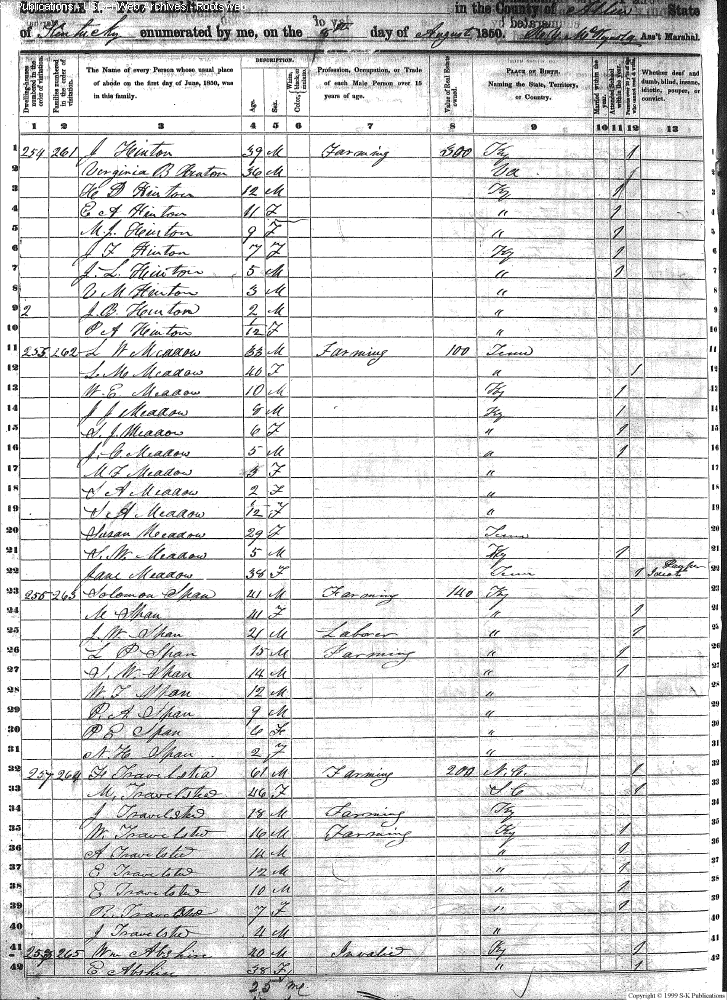 Publications - USGenWeb Archives - Rootsweb
in the County of Allen State
of Kentucky enumerated by me, on the 8th day of August 1850. Ass't Marshal.
Dwelling-houses numbered in the order of visitation. Families numbered in the order of visitation. The Name of every Person whose usual place of abode on the first day of June, 1850, was in this family. DESCRIPTION. Age. Sex. Color, White, black, or mulatto. Profession, Occupation, or Trade of each Male Person over 15 years of age. Value of Real Estate owned. PLACE OF BIRTH. Naming the State, Territory, or Country. Married within the year. Attended School within the year. Whether deaf and dumb, blind, insane, idiotic, pauper, or convict.
1 2 3 4 5 6 7 8 9 10 11 12 13
1 254 261 J Hinton 39 M Farming 300 Ky 1 1
2 Virginia B Hinton 36 M Va 2
3 H D Hinton 12 M Ky 1 3
4 E A Hinton 11 F " 1 4
5 M L Hinton 9 F " 1 5
6 J F Hinton 7 F Ky 1 6
7 J L Hinton 5 M " 1 7
8 V M Hinton 3 M " 8
9 2 J B Hinton 2 M " 9
10 P A Hinton 1/12 F " 10
11 255 262 L W Meadow 33 M Farming 100 Tenn 11
12 L M Meadow 40 F " 1 12
13 W. E. Meadow 10 M Ky 1 13
14 J J Meadow 8 M Ky 1 14
15 S J Meadow 6 F " 1 15
16 J. C Meadow 5 M " 1 16
17 M F Meadow 3 F " 17
18 S A Meadow 2 F " 18
19 S H Meadow 1/12 F " 19
20 Susan Meadow 29 F Tenn 20
21 S. W. Meadow 5 M Ky 1 21
22 Jane Meadow 38 F Tenn 1 Pauper Idiot 22
23 256 263 Solomon Span 41 M Farming 140 Ky 23
24 M Span 41 F " 1 24
25 J. W. Span 21 M Laborer " 1 25
26 L P Span 15 M Farming " 1 26
27 S. W. Span 14 M " 1 27
28 W F Span 12 M " 28
29 R. A Span 9 M " 29
30 P E Span 6 F " 30
31 N H Span 2 F " 31
32 257 264 F Travelsted 61 M Farming 200 N. C. 1 32
33 M, Travelsted 46 F S C 1 33
34 J Travelsted 18 M Farming Ky 34
35 W. Travelsted 16 M Farming Ky 1 35
36 A Travelsted 14 M " 1 36
37 E Travelsted 12 M " 1 37
38 E Travelsted 10 M " 1 38
39 R. Travelsted 7 F " 1 39
40 J Travelsted 4 M " 40
41 258 265 Wm Abshire 40 M Invalid Ky 1 41
42 E Abshire 38 F " 1 42
25 M
Copyright © 1999 S-K Publications